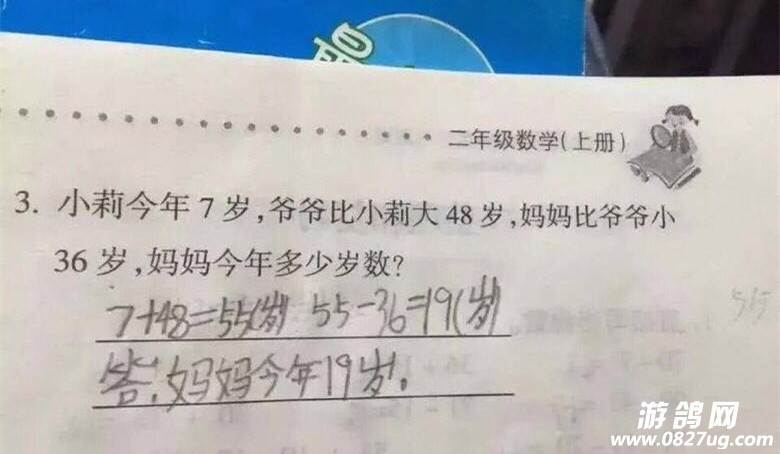 二年级数学(上册)
3. 小莉今年 7 岁,爷爷比小莉大 48 岁,妈妈比爷爷小
36 岁,妈妈今年多少岁数?
7+48=55(岁) 55-36=19(岁)
答:妈妈今年19岁。
515
游鸽网
www.0827ug.com